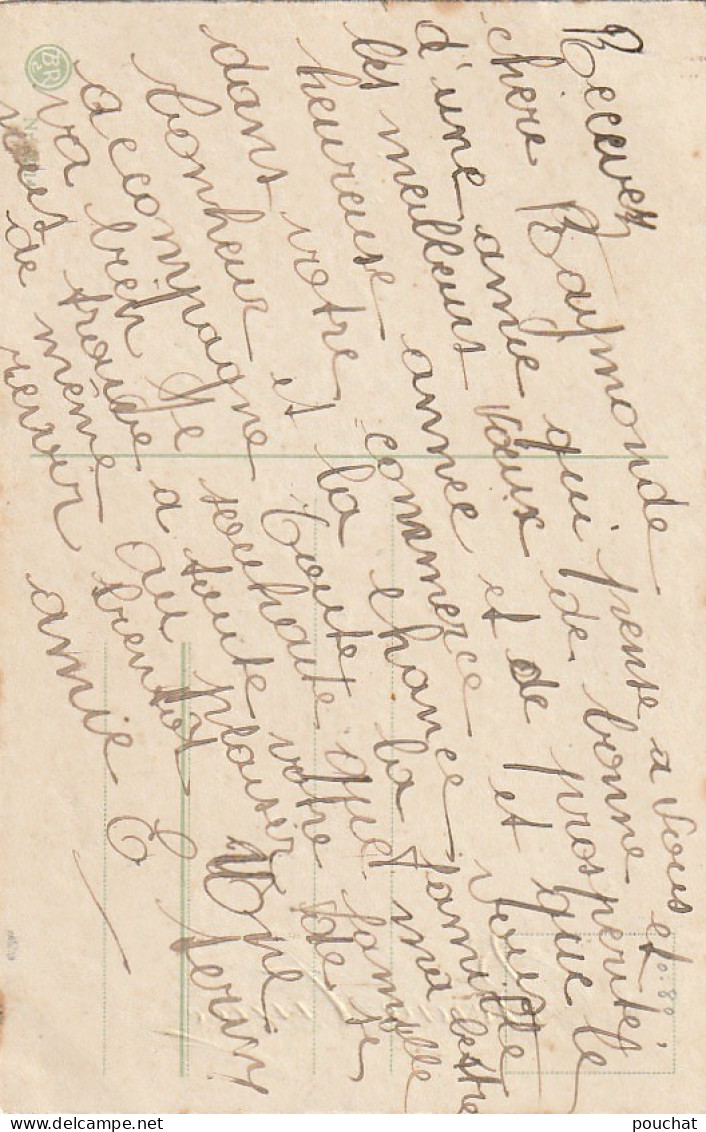 Recevez
chère Raymonde
d'une amie qui pense a vous et
les meilleurs vœux et de bonne
heureuse année et de prospérité,
dans votre commerce et que le
bonheur et la chance vous
accompagne toute la famille
va bien je souhaite que ma
vous trouve a toute votre famille
de même au plaisir de se
revoir bientôt
amie E
0.80
BR
pouchat